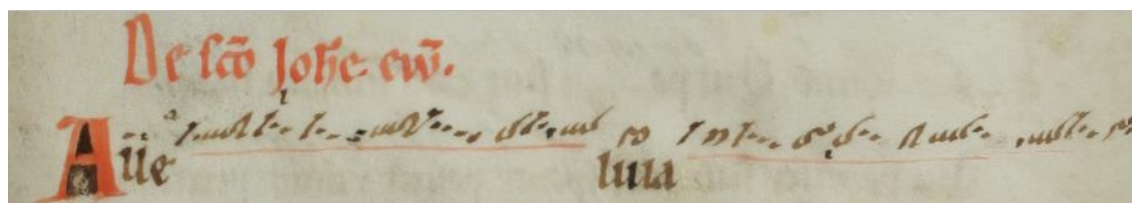 De sc̄o Joh̄e ew̄.
Alle luia